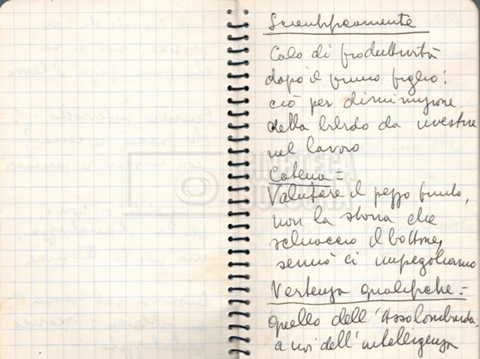 Scientificamente
Calo di produttività
dopo il primo figlio:
ciò per diminuzione
della libido da investire
nel lavoro
Catena =
Valutare il pezzo finito,
non la storia che
schiaccio il bottone,
sennò ci impegoliamo
Vertenza qualifiche =
Quello dell'Assolombarda:
a voi dell'intelligenza